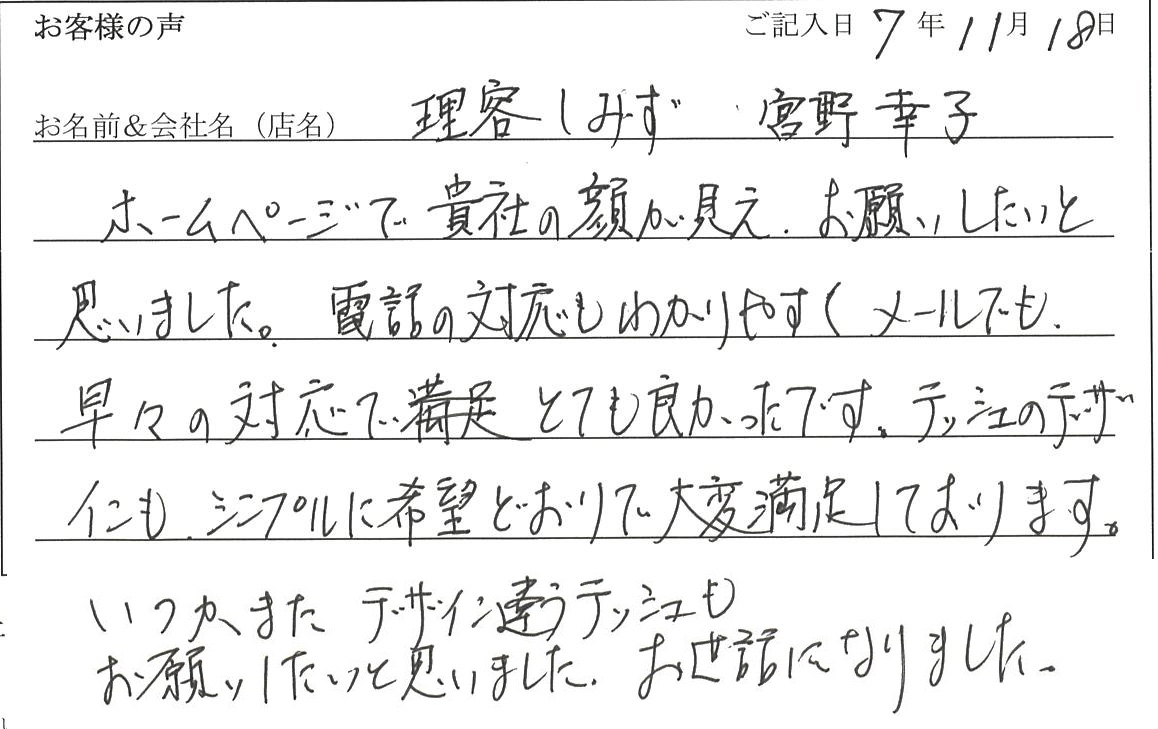 お客様の声 ご記入日 7年11月18日
お名前&会社名（店名） 理容しみず 宮野幸子
ホームページで貴社の顔が見え、お願いしたいと
思いました。電話の対応もわかりやすく メールでも、
早々の対応で満足とても良かったです。テッシュのデザ
インも、シンプルに希望どおりで大変満足しております。
いつか、また デザイン違うテッシュも
お願いしたいと思いました。お世話になりました。